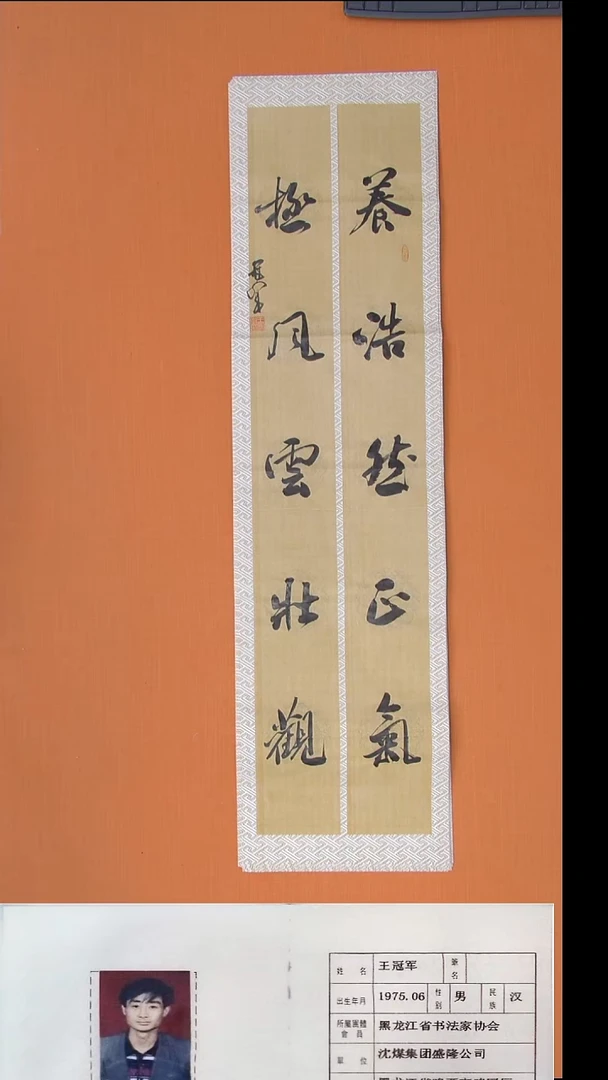 養浩然正氣
極風雲壯觀
姓名 王冠军 筆名
出生年月 1975.06 性别 男 民族 汉
所屬團體會員 黑龙江省书法家协会
單位 沈煤集团盛隆公司